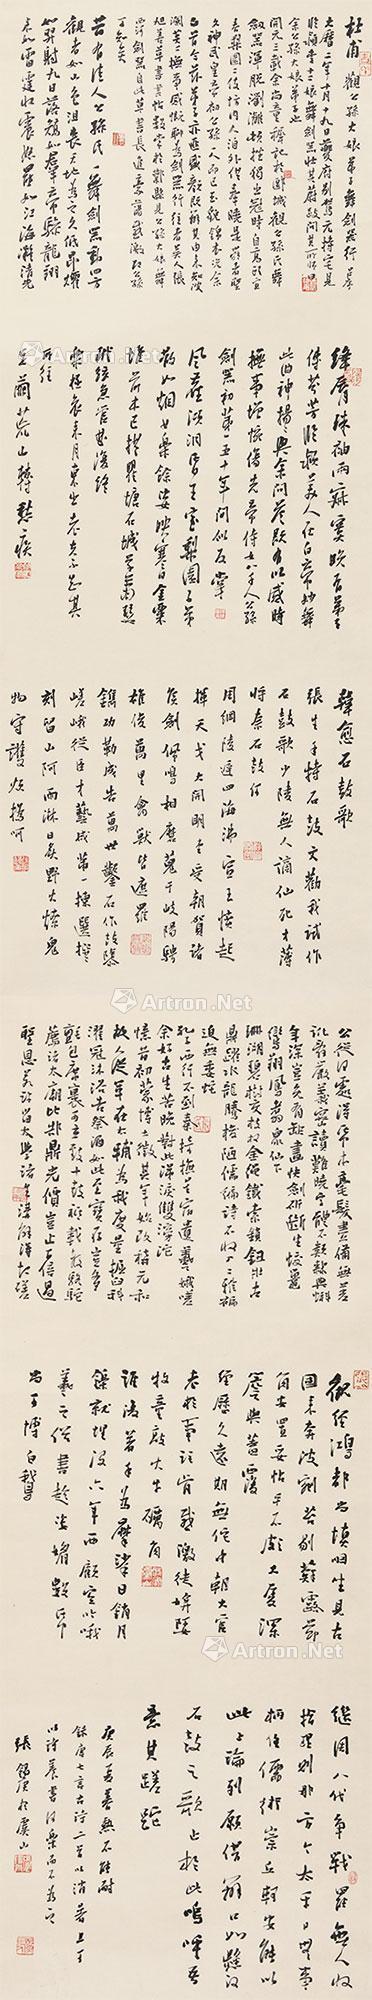 杜甫觀公孫大娘弟子舞劍器行并序
大曆二年十月十九日夔府別駕元持宅見
臨潁李十二娘舞劍器壯其蔚跂問其所師曰
余公孫大娘弟子也
開元三載余尚童稚記於郾城觀公孫氏舞
劍器渾脫瀏灕頓挫獨出冠時自高頭宜
春梨園二伎坊內人洎外供奉曉是舞者聖
文神武皇帝初公孫一人而已玉貌錦衣況余
白首今茲弟子亦匪盛顏既辨其由來知波
瀾莫二撫事慷慨聊為劍器行往者吳人張
旭善草書書帖數常於鄴縣見公孫大娘舞
西河劍器自此草書長進豪蕩感激即公孫
可知矣
昔有佳人公孫氏一舞劍器動四方
觀者如山色沮喪天地為之久低昂㸌
如羿射九日落矯如群帝驂龍翔
來如雷霆收震怒罷如江海凝清光
絳脣珠袖兩寂寞晚有弟子
傳芬芳臨潁美人在白帝妙舞
此曲神揚揚與余問答既有以感時
撫事增惋傷先帝侍女八千人公孫
劍器初第一五十年間似反掌
風塵澒洞昏王室梨園子弟
散如烟女樂餘姿映寒日金粟
堆前木已拱瞿塘石城草蕭瑟
玳筵急管曲復終
樂極哀來月東出老夫不知其
所往
足繭荒山轉愁疾
韓愈石鼓歌
張生手持石鼓文勸我試作
石鼓歌少陵無人謫仙死才薄
將奈石鼓何
周綱陵遲四海沸宣王憤起
揮天戈大開明堂受朝賀諸
侯劍佩鳴相磨蒐于岐陽騁
雄俊萬里禽獸皆遮羅
鐫功勒成告萬世鑿石作鼓隳
嵯峨從臣才藝咸第一揀選撰
刻留山阿雨淋日炙野火燎鬼
物守護煩撝呵
公從何處得紙本毫髮盡備無差
訛辭嚴義密讀難曉字體不類隸與蝌
年深豈免有缺畫快劍斫斷生蛟鼉
鸞翔鳳翥眾仙下
珊瑚碧樹交枝柯金繩鐵索鎖鈕壯古
鼎躍水龍騰梭陋儒編詩不收入二雅褊
迫無委蛇
孔子西行不到秦掎摭星宿遺羲娥嗟
余好古生苦晚對此涕淚雙滂沱
憶昔初蒙博士徵其年始改稱元和
故人從軍在右輔為我度量掘臼科
濯冠沐浴告祭酒如此至寶存豈多
氈包席裹可立致十鼓祇載數駱駝
薦諸太廟比郜鼎光價豈止百倍過
聖恩若許留太學諸生講解得切磋
觀經鴻都尚填咽坐見舉
國來奔波剜苔剔蘚露節
角安置妥帖平不頗大廈深
簷與蓋覆
經歷久遠期無佗中朝大官
老於事詎肯感激徒媕婀
牧童敲火牛礪角
誰復著手為摩挲日銷月
鑠就埋沒六年西顧空吟哦
羲之俗書趁姿媚數紙
尚可博白鵝
繼周八代爭戰罷無人收
拾理則那方今太平日無事
柄任儒術崇丘軻安能以
此上論列願借辯口如懸河
石鼓之歌止於此嗚呼吾
意其蹉跎
庚辰夏暑熱不能耐
錄唐七言古詩二首以消暑
以詩養書樂而不為
張錫庚於虞山
Artron.Net